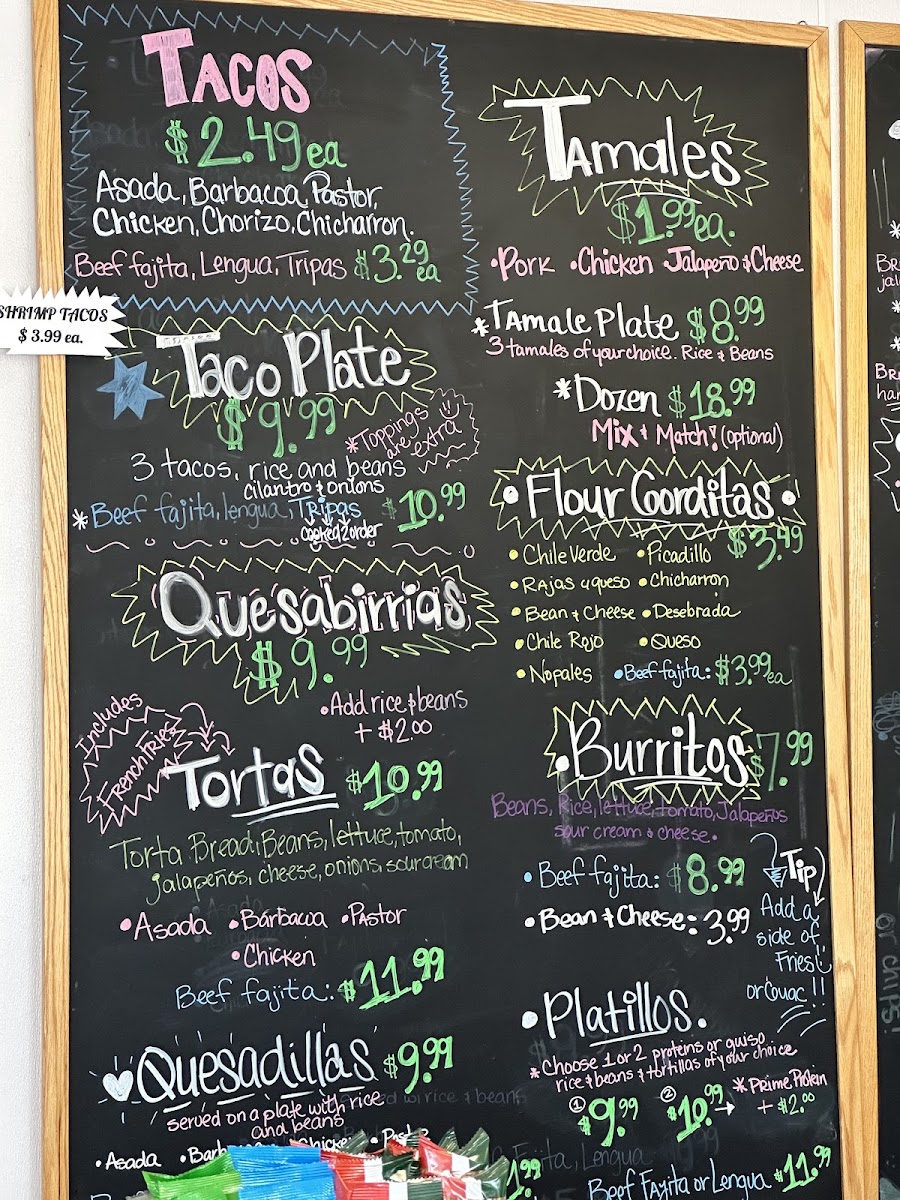 TACOS
$2.49 ea
Asada, Barbacoa, Pastor,
Chicken, Chorizo, Chicharron.
Beef fajita, Lengua, Tripas $3.29 ea
SHRIMP TACOS
$ 3.99 ea.
Taco Plate
$9.99
*Toppings are extra
3 tacos, rice and beans
cilantro & onions
*Beef fajita, lengua, Tripas $10.99
cooked 2 order
Quesabirrias
$9.99
•Add rice & beans
+ $2.00
Includes
French Fries
Tortas $10.99
Torta Bread, Beans, lettuce, tomato,
jalapeños, cheese, onions, sour cream
•Asada •Barbacoa •Pastor
•Chicken
Beef fajita: $11.99
Quesadillas $9.99
served on a plate with rice
and beans
•Asada •Barb Chicken •Pastor
Tamales
$1.99 ea.
•Pork •Chicken •Jalapeño & Cheese
*Tamale Plate $8.99
3 tamales of your choice. Rice & Beans
*Dozen $18.99
Mix & Match! (optional)
•Flour Gorditas•
$3.49
•Chile Verde •Picadillo
•Rajas y queso •Chicharron
•Bean & Cheese •Desebrada
•Chile Rojo •Queso
•Nopales •Beef fajita: $3.99 ea
•Burritos $7.99
Beans, Rice, lettuce, tomato, Jalapeños
sour cream & cheese.
•Beef fajita: $8.99
•Bean & Cheese: 3.99
Tip
Add a
side of
Fries
or Guac!!
•Platillos.
*Choose 1 or 2 proteins or guiso
rice & beans & tortillas of your choice
① $9.99 ② $10.99 → *Prime Protein
+ $2.00
Beef Fajita or Lengua $11.99
or chips!